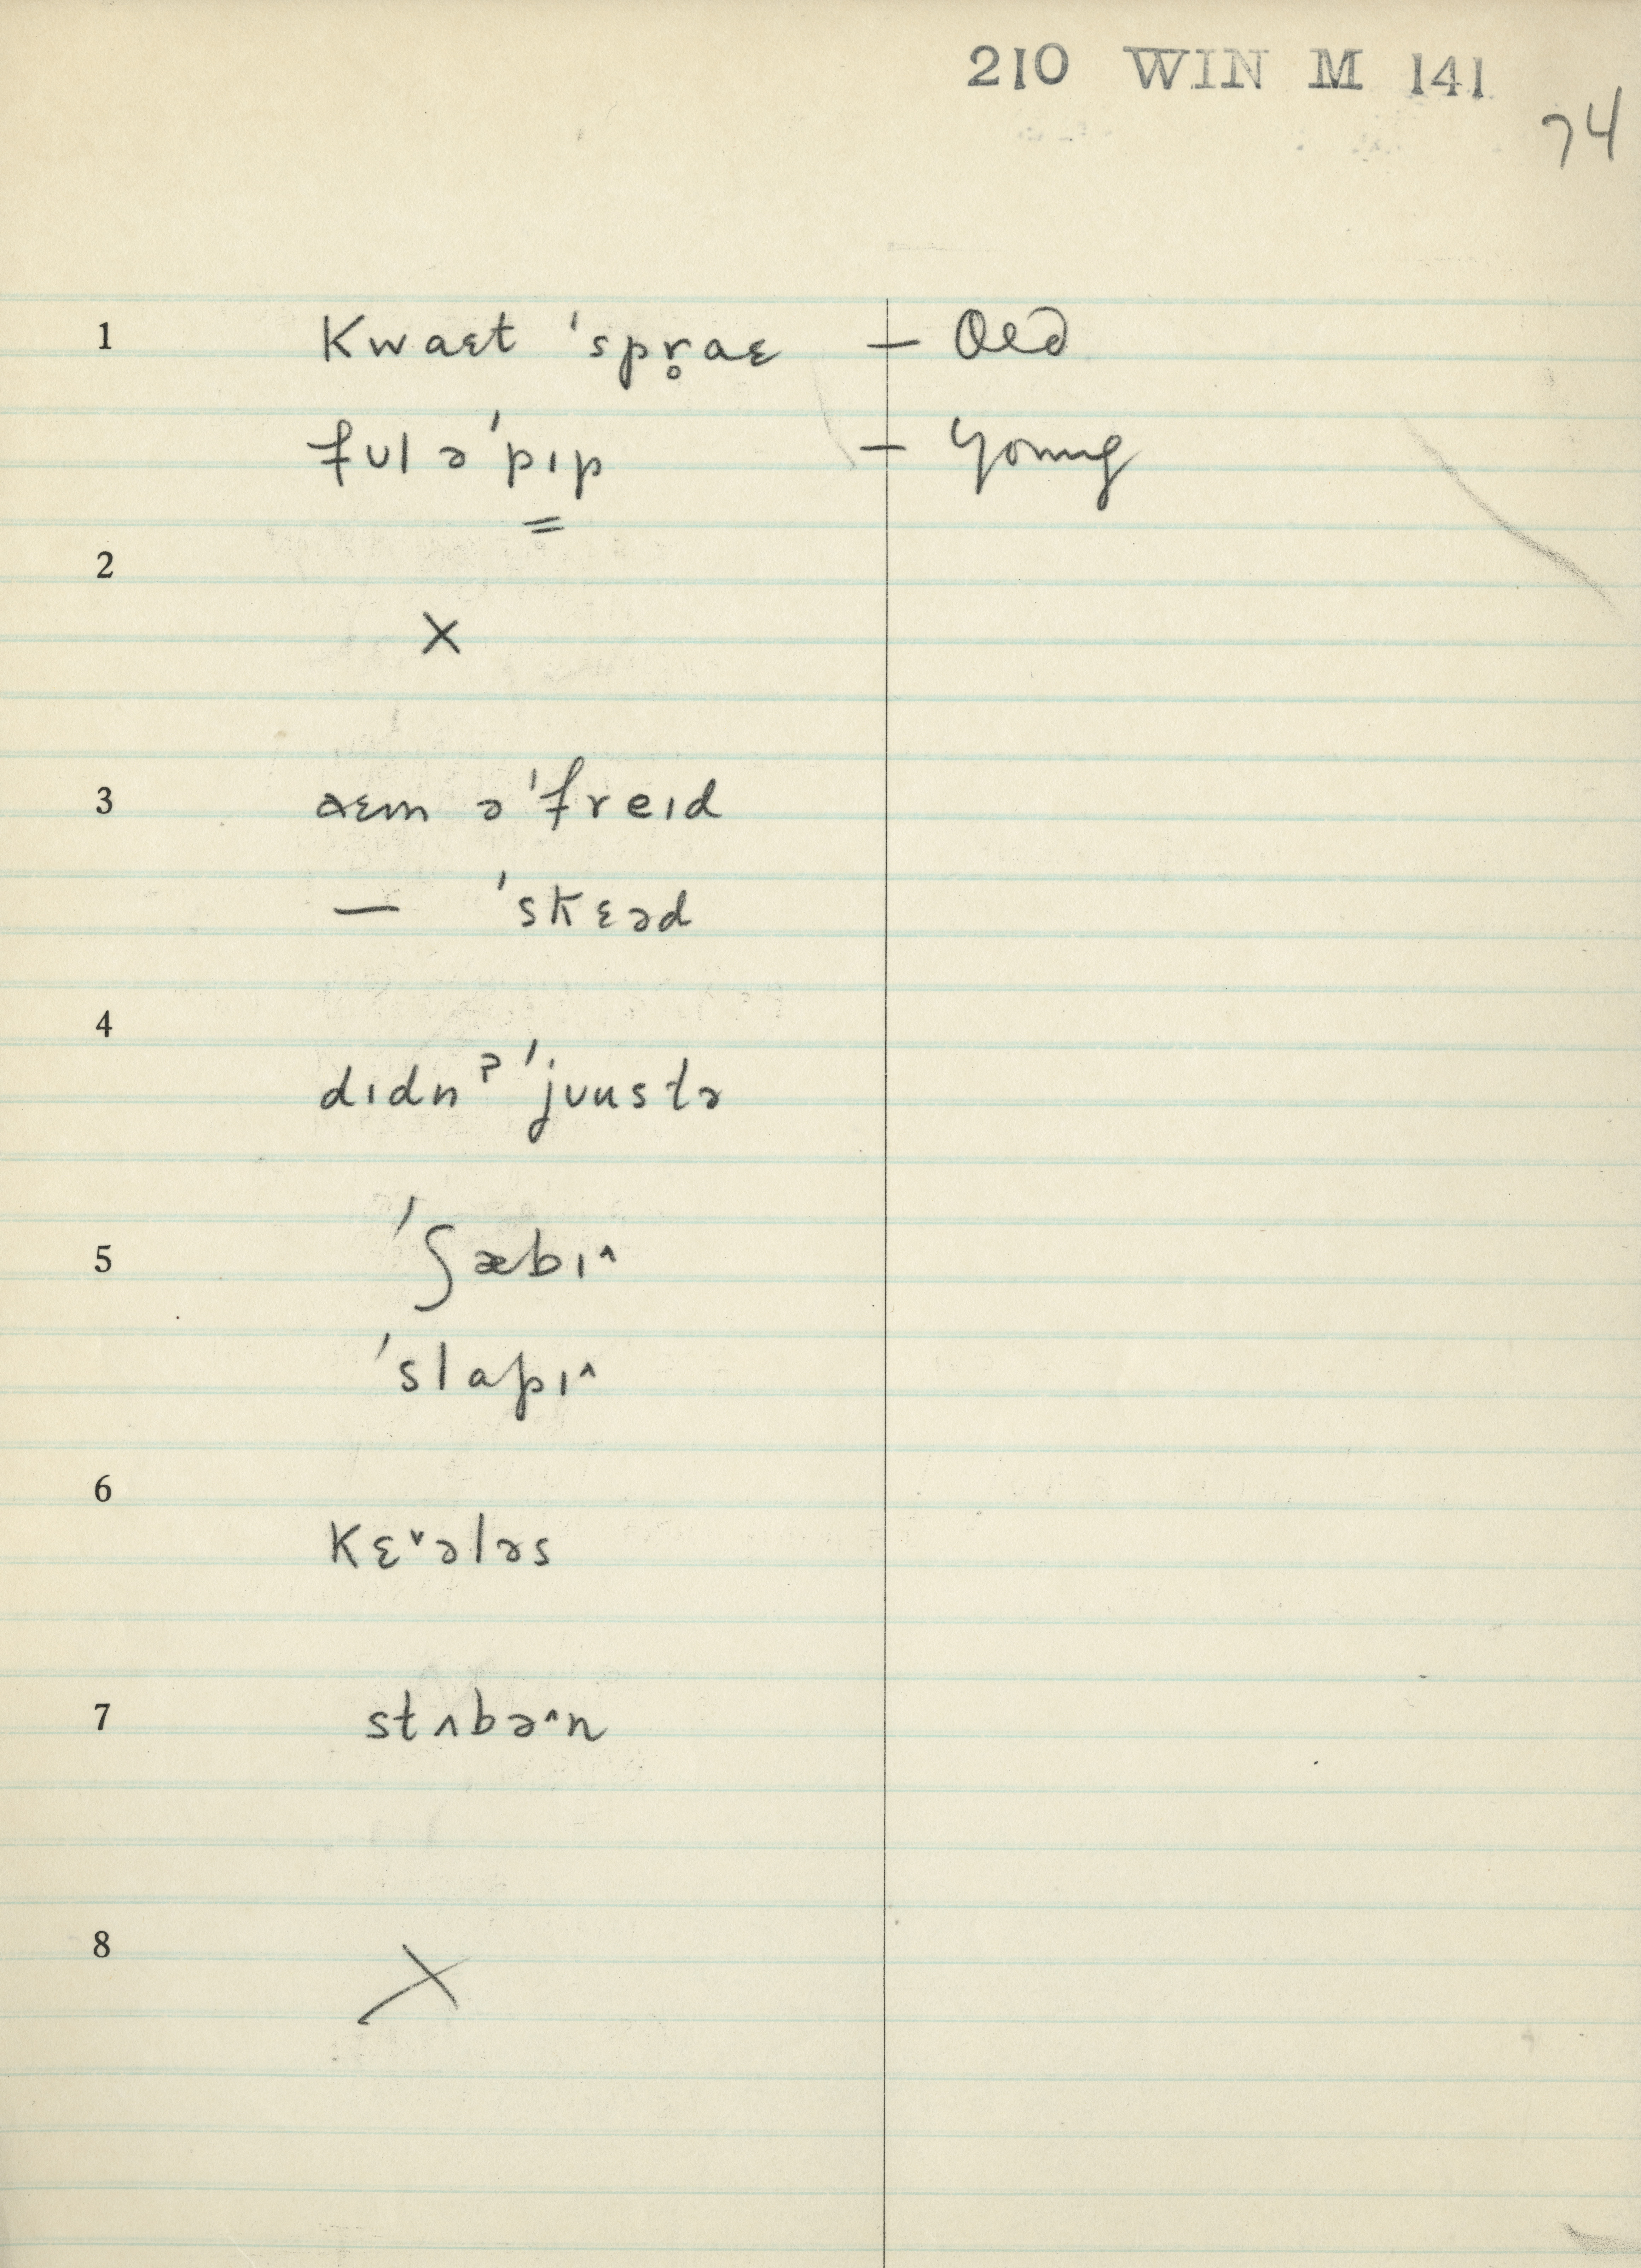 210 WIN M 141
74
1 kwaɛt 'spr̥aɛ — Old
fʊl ə'pɪp — Young
=
2
×
3 aɛm ə'freɪd
— 'skɛəd
4
dɪdnˀ 'jʊustə
5 'ʃæbɪ^
'slapɪ^
6
kɛˇələs
7 stʌbə^n
8 ×